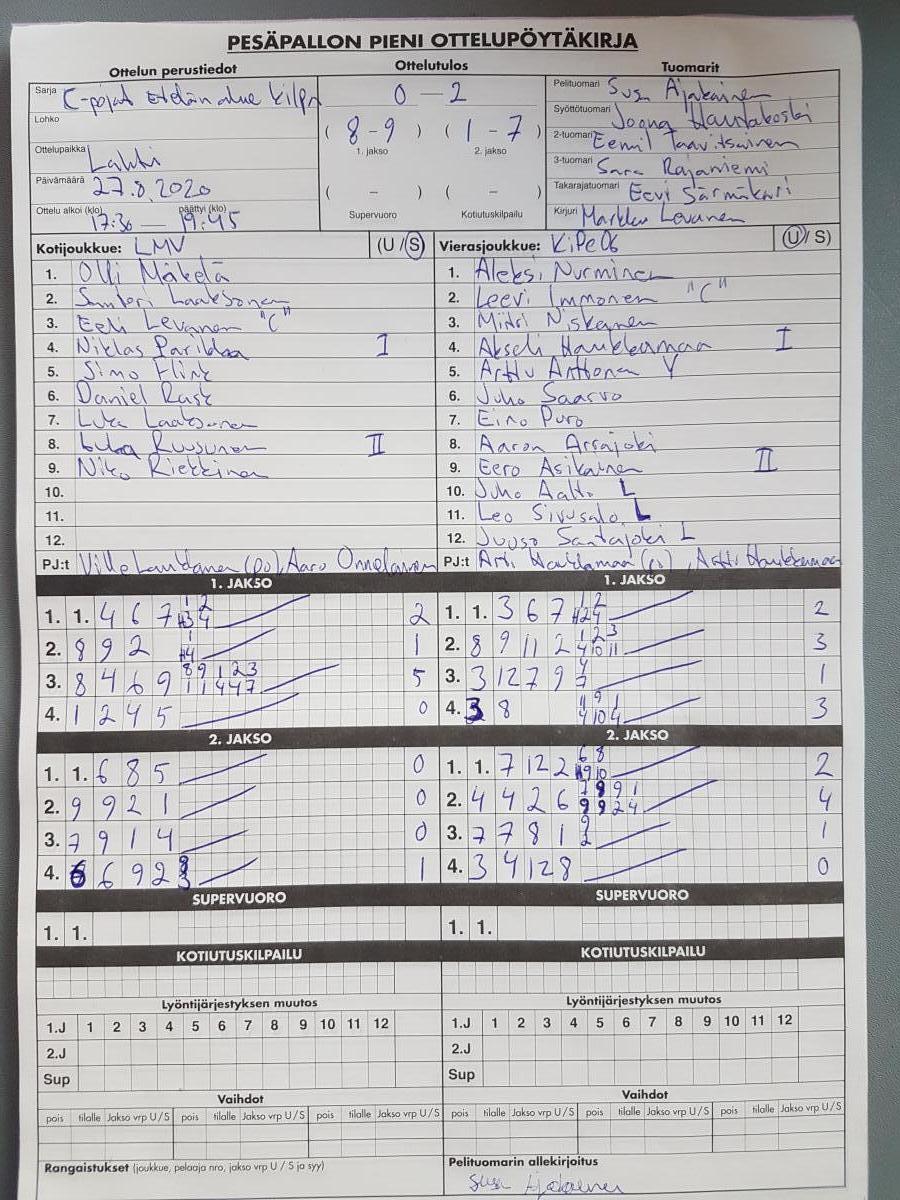 PESÄPALLON PIENI OTTELUPÖYTÄKIRJA
Ottelun perustiedot
Sarja C-pojat Etelän alue kilpa
Lohko
Ottelupaikka Lahti
Päivämäärä 27.8.2020
Ottelu alkoi (klo) päättyi (klo)
17:30 — 19:45
Ottelutulos
0 - 2
( 8 - 9 ) ( 1 - 7 )
1. jakso 2. jakso
( - ) ( - )
Supervuoro Kotiutuskilpailu
Tuomarit
Pelituomari Susa Ajakainen
Syöttötuomari Joona Hautakoski
2-tuomari Eemil Taavitsainen
3-tuomari Sara Rajaniemi
Takarajatuomari Eevi
Kirjuri Markku Levanen
Kotijoukkue: LMV (U/S)
1. Olli Mäkelä
2. Santeri Laaksonen
3. Eeli Levanen "C"
4. Niklas Parikka I
5. Simo Flink
6. Daniel Rask
7. Luka Laaksonen
8. Luka Ruusunen II
9. Niko Riekkinen
10.
11.
12.
PJ:t Ville (PJ), Aaro Onnelainen
Vierasjoukkue: KiPe06 (U/S)
1. Aleksi Nurminen
2. Leevi Immonen "C"
3. Miitri Niskanen
4. Akseli Haukkamaa I
5. Arttu Anttonen V
6. Juho Saarvo
7. Eino Puro
8. Aaron Arrajoki
9. Eero Asikainen II
10. Juho Aalto L
11. Leo Sivusalo L
12. Juuso Santajoki L
PJ:t Haukkamaa , Antti Haukkamaa
1. JAKSO
1. 1. 4 6 7 1 2 H3 4 2
2. 8 9 2 1 H4 1
3. 8 4 6 9 8 9 1 2 3 1 1 4 4 7 5
4. 1 2 4 5 0
1. JAKSO
1. 1. 3 6 7 1 2 H2 4 2
2. 8 9 11 2 1 2 3 4 10 11 3
3. 3 12 7 9 4 7 1
4. 3 8 1 9 1 4 10 4 3
2. JAKSO
1. 1. 6 8 5 0
2. 9 9 2 1 0
3. 7 9 1 4 0
4. 6 6 9 2 8 3 1
2. JAKSO
1. 1. 7 12 2 6 8 H9 10 2
2. 4 4 2 6 7 8 9 1 9 9 2 4 4
3. 7 7 8 1 9 2 1
4. 3 4 12 8 0
SUPERVUORO
1. 1.
SUPERVUORO
1. 1.
KOTIUTUSKILPAILU
KOTIUTUSKILPAILU
Lyöntijärjestyksen muutos
1.J 1 2 3 4 5 6 7 8 9 10 11 12
2.J
Sup
Lyöntijärjestyksen muutos
1.J 1 2 3 4 5 6 7 8 9 10 11 12
2.J
Sup
Vaihdot
pois tilalle Jakso vrp U/S pois tilalle Jakso vrp U/S pois tilalle Jakso vrp U/S
Vaihdot
pois tilalle Jakso vrp U/S pois tilalle Jakso vrp U/S pois tilalle Jakso vrp U/S
Rangaistukset (joukkue, pelaaja nro, jakso vrp U / S ja syy)
Pelituomarin allekirjoitus
Susa Ajakainen